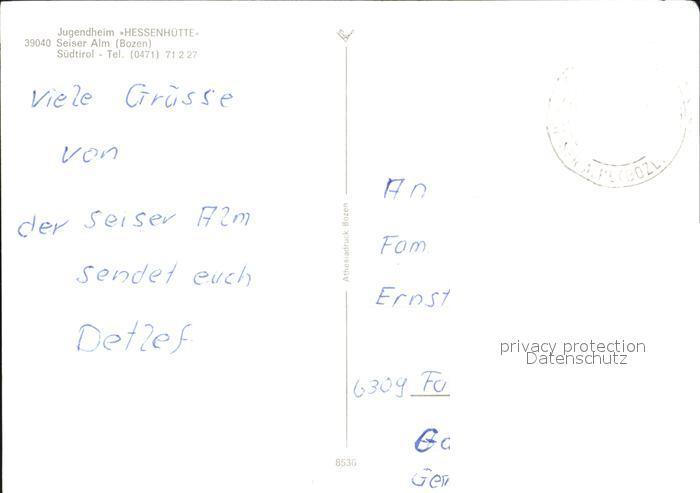 Jugendheim »HESSENHÜTTE«
39040 Seiser Alm (Bozen)
Südtirol - Tel. (0471) 71 2 27
Viele Grüsse
von
der Seiser Alm
sendet euch
Detlef
Athesiadruck Bozen
8536
An
Fam
Ernst
6309 Fa
Ge
privacy protection
Datenschutz